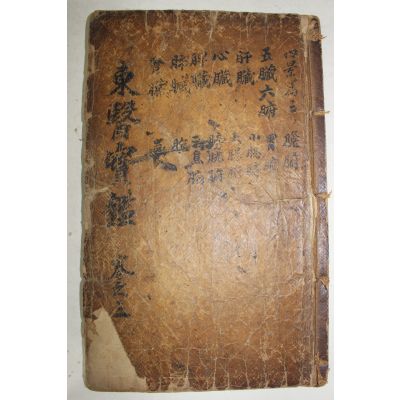 內景篇三 膽腑
五臟六腑 胃腑
肝臟 小腸腑
心臟 大腸腑
脾臟 膀胱腑
肺臟 三焦腑
腎臟
東醫寶鑑 卷之三